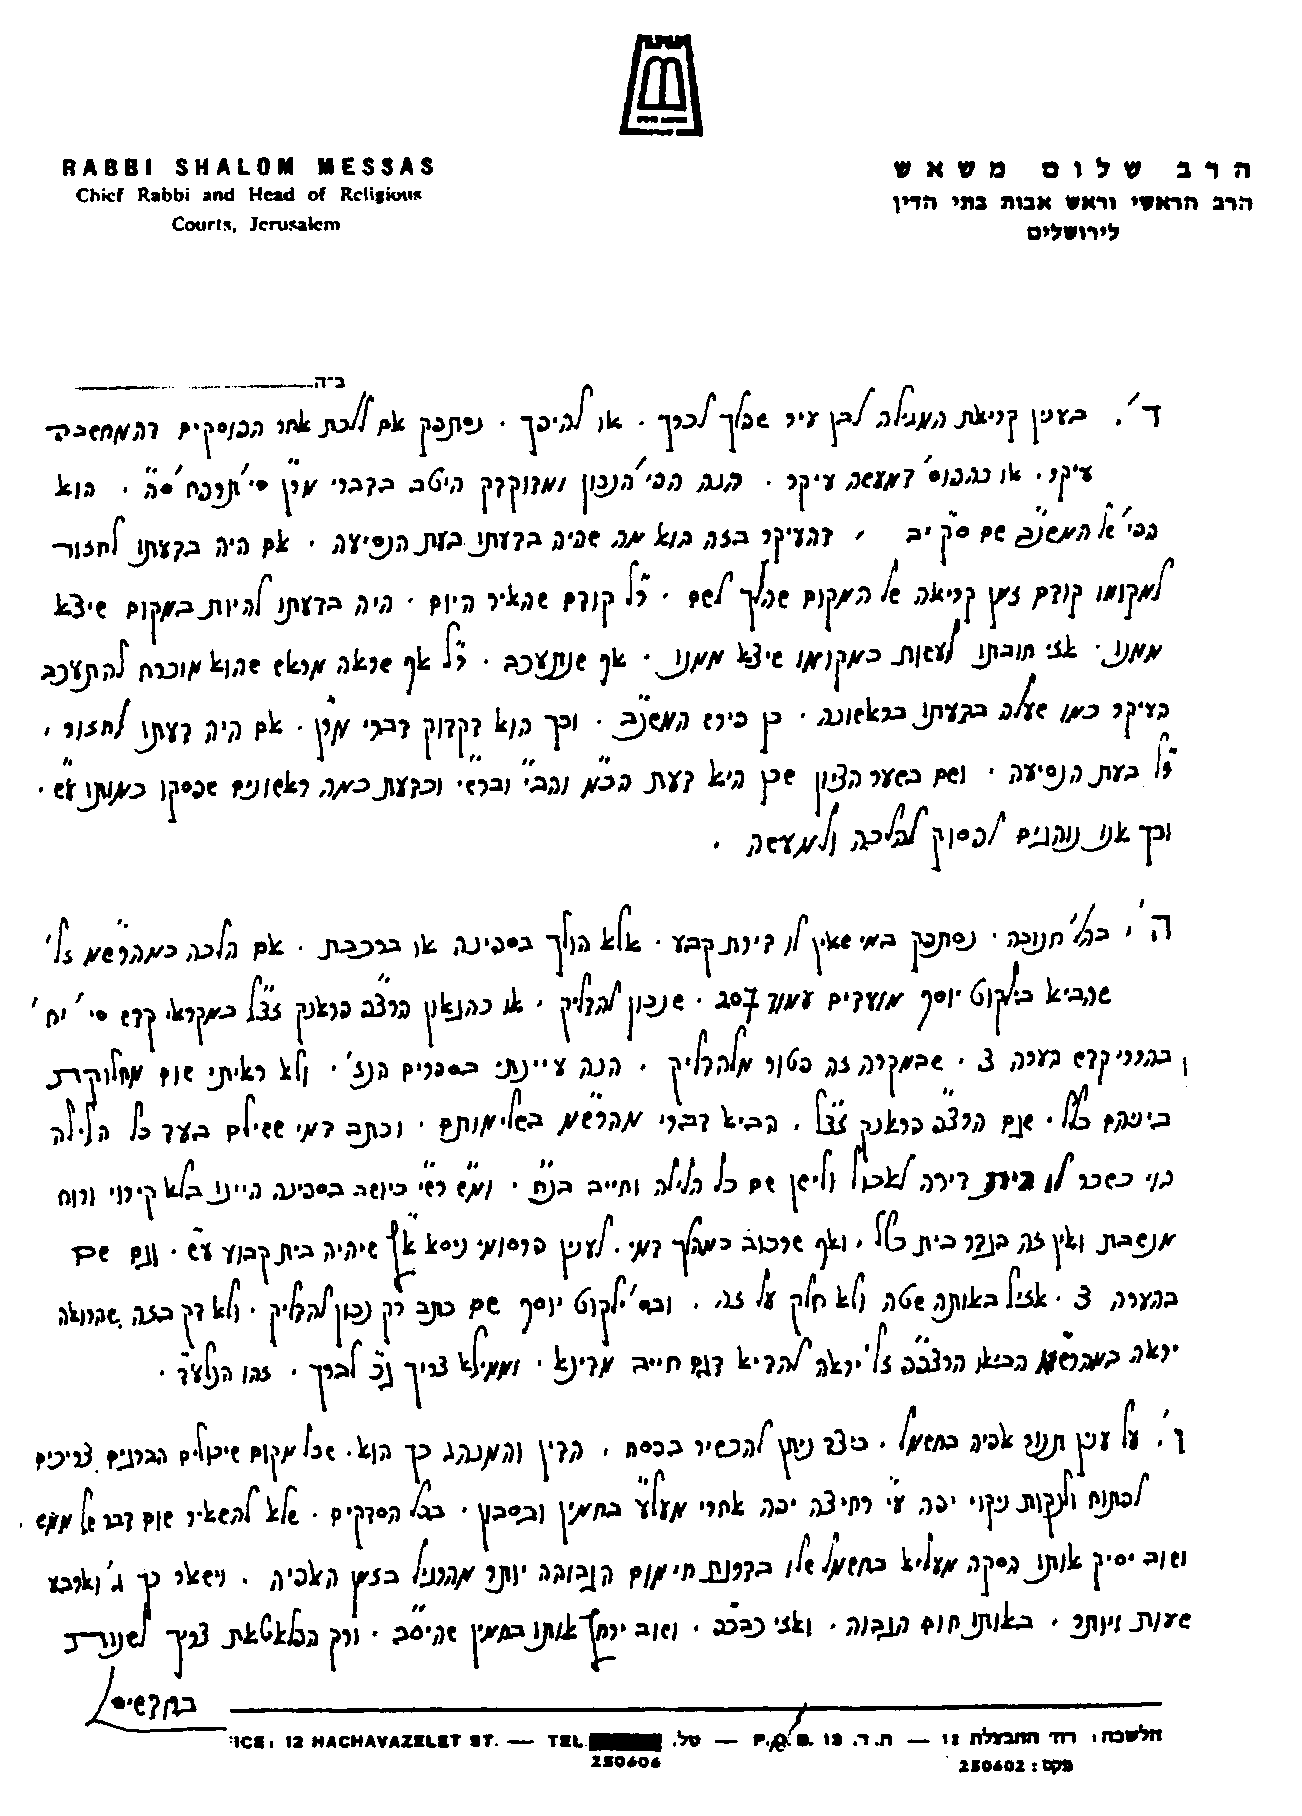 RABBI SHALOM MESSAS
Chief Rabbi and Head of Religious
Courts, Jerusalem
הרב שלום משאש
הרב הראשי וראש אבות בתי הדין
לירושלים
ב״ה
ד'. בענין קריאת המגילה לבן עיר שהלך לכרך. או להיפך. נסתפק אם ללכת אחר הפוסקים דהמחשבה
עיקר. או כהפוס' דמעשה עיקר. הנה הכי' הנכון ומדוקדק היטב בדברי מרן סי' תרפח' ס״ה. הוא
הפי' של המשנ״ב שם ס״ק יב, דהעיקר בזה הוא מה שהיה בדעתו בעת הנסיעה. אם היה בדעתו לחזור
למקומו קודם זמן קריאה של המקום שהלך לשם. ר״ל קודם שהאיר היום. היה בדעתו להיות במקום שיצא
ממנו. אזי חובתו לעשות כמקומו שיצא ממנו. אף שנתעכב. ר״ל אף שראה מראש שהוא מוכרח להתעכב
העיקר כמו שעלה בדעתו בראשונה. כן פירש המשנ״ב. וכך הוא דקדוק דברי מרן. אם היה דעתו לחזור,
ר״ל בעת הנסיעה. ושם בשער הציון שכן היא דעת הכ״מ והב״י וברש״י ובדעת כמה ראשונים שפסקו כמותו ע״ש.
וכך אנו נוהגים לפסוק להלכה ולמעשה.
ה'. בהל' חנוכה. נסתפק במי שאין לו דירת קבע. אלא הולך בספינה או ברכבת. אם הלכה כמהרש״ם ז״ל
שהביא בילקוט יוסף מועדים עמוד שנכון להדליק. או כהגאון הרצ״פ פראנק זצ״ל במקראי קדש סי' יח'
ובהררי קדש הערה 3. שבמקרה זה פטור מלהדליק. הנה עיינתי בספרים הנז'. ולא ראיתי שום מחלוקת
ביניהם כלל. שגם הרצ״פ פראנק זצ״ל, הביא דברי מהרש״ם בשלימותם. וכתב דמי ששילם בעד כל הלילה
הוי כשכר לו בית דירה לאכול ולישן שם כל הלילה וחייב בנ״ח. ומ״ש רש״י כיושב בספינה היינו בלא קירוי ורוח
מנשבת ואין זה בגדר בית כלל, ואף שרכוב כמהלך דמי. לענין פרסומי ניסא א״צ שיהיה בית קבוע ע״ש. וגם שם
בהערה 3. אזיל באותה שטה ולא חלק על זה. ובס' ילקוט יוסף שם כתב רק נכון להדליק. ולא דק בזה שהרואה
יראה במהרש״ם הביאו הרצפ״פ ז״ל יראה להדיא דגם חייב מדינא. וממילא צריך ג״כ לברך. זהו הנלע״ד.
ו'. על ענין תנור אפיה בחשמל. כיצד ניתן להכשיר בפסח. הדין והמנהג כך הוא. שכל מקום שיכולים הברגים צריכים
לפתוח ולנקות ניקוי יפה ע״י רחיצה יפה אחרי מעל״ע בחמין ובסבון. בכל הסדקים. שלא להשאיר שום דבר של ממש.
ושוב יסיק אותו הסקה מעליא בחשמל שלו בדרגת חימום הגבוהה יותר מהרגיל בזמן האפיה. וישאר כך ג' וארבע
שעות ויותר. באותו חום הגבוה. ואזי כבכ״פ. ושוב ירחץ אותו בחמין שהיס״ב. ורק הפלאטאת צריך לשנות
בחדשים
ICE: 12 HACHAVAZELET ST. — TEL 250606 טל. — P.O.B. 19 ת.ד. — 12 הלשכה: רח' החבצלת
פקס: 250602